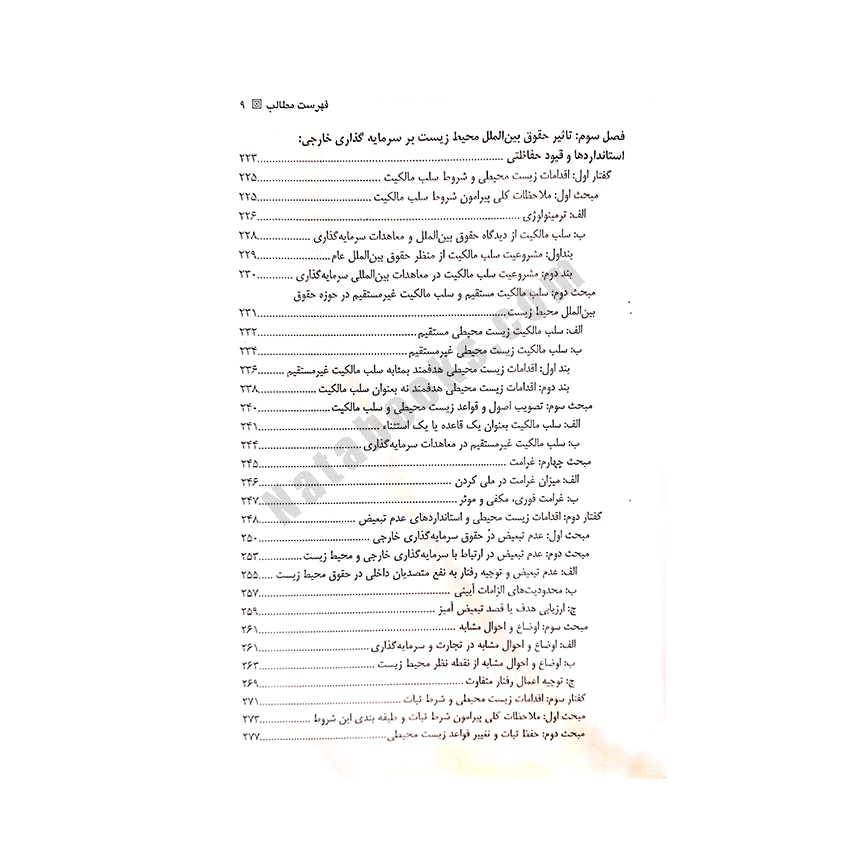 فهرست مطالب ۹
فصل سوم: تاثیر حقوق بین‌الملل محیط زیست بر سرمایه گذاری خارجی:
استانداردها و قیود حفاظتی ........ ۲۲۳
گفتار اول: اقدامات زیست محیطی و شروط سلب مالکیت ........ ۲۲۵
مبحث اول: ملاحظات کلی پیرامون شروط سلب مالکیت ........ ۲۲۵
الف: ترمینولوژی ........ ۲۲۶
ب: سلب مالکیت از دیدگاه حقوق بین‌الملل و معاهدات سرمایه‌گذاری ........ ۲۲۸
بنداول: مشروعیت سلب مالکیت از منظر حقوق بین‌الملل عام ........ ۲۲۹
بند دوم: مشروعیت سلب مالکیت در معاهدات بین‌المللی سرمایه‌گذاری ........ ۲۳۰
مبحث دوم: سلب مالکیت مستقیم و سلب مالکیت غیرمستقیم در حوزه حقوق
بین‌الملل محیط زیست ........ ۲۳۱
الف: سلب مالکیت زیست محیطی مستقیم ........ ۲۳۲
ب: سلب مالکیت زیست محیطی غیرمستقیم ........ ۲۳۴
بند اول: اقدامات زیست محیطی هدفمند بمثابه سلب مالکیت غیرمستقیم ........ ۲۳۶
بند دوم: اقدامات زیست محیطی هدفمند نه بعنوان سلب مالکیت ........ ۲۳۸
مبحث سوم: تصویب اصول و قواعد زیست محیطی و سلب مالکیت ........ ۲۴۰
الف: سلب مالکیت بعنوان یک قاعده یا یک استثناء ........ ۲۴۱
ب: سلب مالکیت غیرمستقیم در معاهدات سرمایه‌گذاری ........ ۲۴۴
مبحث چهارم: غرامت ........ ۲۴۵
الف: میزان غرامت در ملی کردن ........ ۲۴۶
ب: غرامت فوری، مکفی و موثر ........ ۲۴۷
گفتار دوم: اقدامات زیست محیطی و استانداردهای عدم تبعیض ........ ۲۴۸
مبحث اول: عدم تبعیض در حقوق سرمایه‌گذاری خارجی ........ ۲۵۰
مبحث دوم: عدم تبعیض در ارتباط با سرمایه‌گذاری خارجی و محیط زیست ........ ۲۵۳
الف: عدم تبعیض و توجیه رفتار به نفع متصدیان داخلی در حقوق محیط زیست ........ ۲۵۵
ب: محدودیت‌های الزامات آیینی ........ ۲۵۷
ج: ارزیابی هدف یا قصد تبعیض آمیز ........ ۲۵۹
مبحث سوم: اوضاع و احوال مشابه ........ ۲۶۱
الف: اوضاع و احوال مشابه در تجارت و سرمایه‌گذاری ........ ۲۶۱
ب: اوضاع و احوال مشابه از نقطه نظر محیط زیست ........ ۲۶۳
ج: توجیه اعمال رفتار متفاوت ........ ۲۶۹
گفتار سوم: اقدامات زیست محیطی و شرط ثبات ........ ۲۷۱
مبحث اول: ملاحظات کلی پیرامون شرط ثبات و طبقه بندی این شروط ........ ۲۷۳
مبحث دوم: حفظ ثبات و تغییر قواعد زیست محیطی ........ ۲۷۷
Natabooks.com